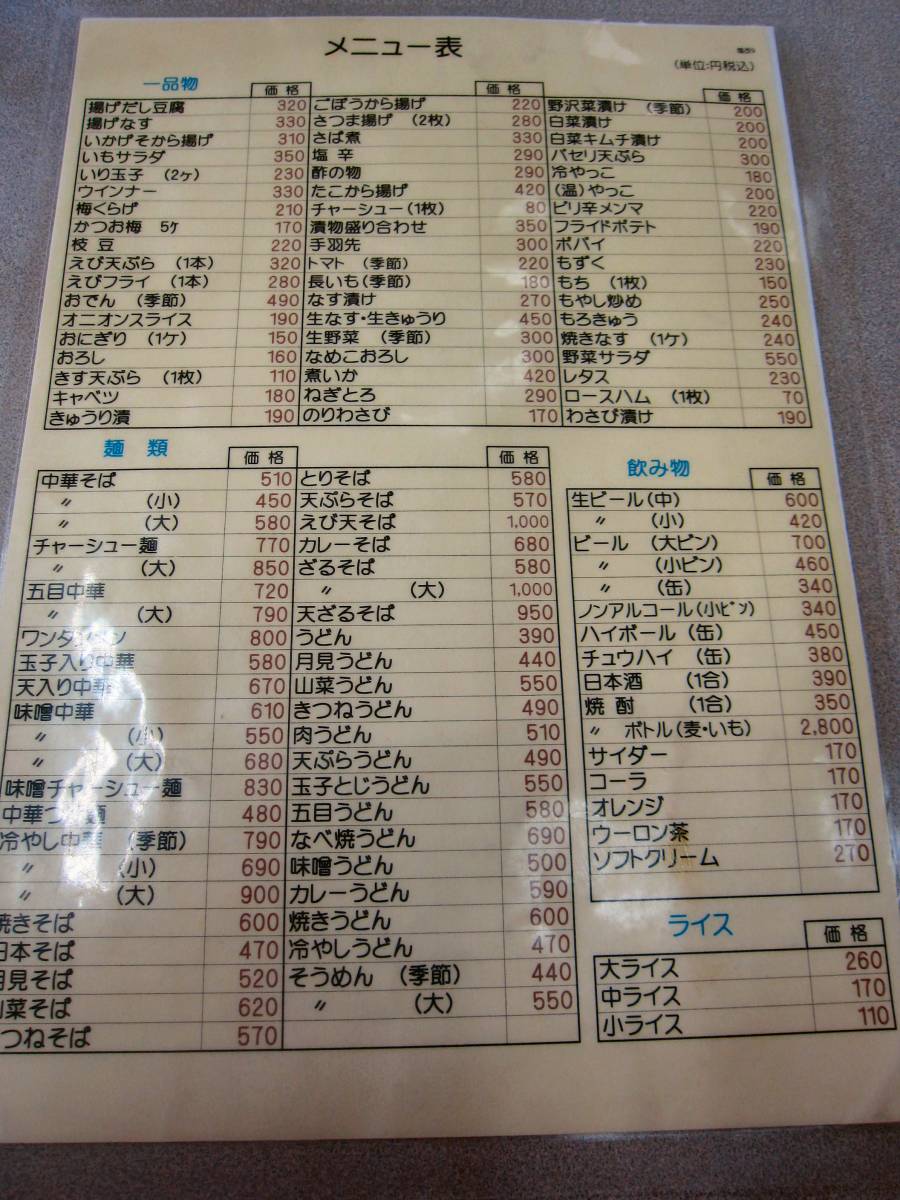 メニュー表
(単位:円税込)
一品物
価格
揚げだし豆腐 320
揚げなす 330
いかげそから揚げ 310
いもサラダ 350
いり玉子 (2ヶ) 230
ウインナー 330
梅くらげ 210
かつお梅 5ケ 170
枝豆 220
えび天ぷら (1本) 320
えびフライ (1本) 280
おでん (季節) 490
オニオンスライス 190
おにぎり (1ケ) 150
おろし 160
きす天ぷら (1枚) 110
キャベツ 180
きゅうり漬 190
価格
ごぼうから揚げ 220
さつま揚げ (2枚) 280
さば煮 330
塩辛 290
酢の物 290
たこから揚げ 420
チャーシュー(1枚) 80
漬物盛り合わせ 350
手羽先 300
トマト (季節) 220
長いも(季節) 180
なす漬け 270
生なす・生きゅうり 450
生野菜 (季節) 300
なめこおろし 300
煮いか 420
ねぎとろ 290
のりわさび 170
価格
野沢菜漬け (季節) 200
白菜漬け 200
白菜キムチ漬け 200
パセリ天ぷら 300
冷やっこ 180
(温)やっこ 200
ピリ辛メンマ 220
フライドポテト 190
ポパイ 220
もずく 230
もち (1枚) 150
もやし炒め 250
もろきゅう 240
焼きなす (1ケ) 240
野菜サラダ 550
レタス 230
ロースハム (1枚) 70
わさび漬け 190
麺類
価格
中華そば 510
〃 (小) 450
〃 (大) 580
チャーシュー麺 770
〃 (大) 850
五目中華 720
〃 (大) 790
ワンタンメン 800
玉子入り中華 580
天入り中華 670
味噌中華 610
〃 (小) 550
〃 (大) 680
味噌チャーシュー麺 830
中華つ 麺 480
冷やし中華 (季節) 790
〃 (小) 690
〃 (大) 900
焼きそば 600
日本そば 470
月見そば 520
山菜そば 620
つねそば 570
価格
とりそば 580
天ぷらそば 570
えび天そば 1,000
カレーそば 680
ざるそば 580
〃 (大) 1,000
天ざるそば 950
うどん 390
月見うどん 440
山菜うどん 550
きつねうどん 490
肉うどん 510
天ぷらうどん 490
玉子とじうどん 550
五目うどん 580
なべ焼うどん 690
味噌うどん 500
カレーうどん 590
焼きうどん 600
冷やしうどん 470
そうめん (季節) 440
〃 (大) 550
飲み物
価格
生ビール(中) 600
〃 (小) 420
ビール (大ビン) 700
〃 (小ビン) 460
〃 (缶) 340
ノンアルコール(小ビン) 340
ハイボール (缶) 450
チュウハイ (缶) 380
日本酒 (1合) 390
焼酎 (1合) 350
〃 ボトル(麦・いも) 2,800
サイダー 170
コーラ 170
オレンジ 170
ウーロン茶 170
ソフトクリーム 270
ライス
価格
大ライス 260
中ライス 170
小ライス 110